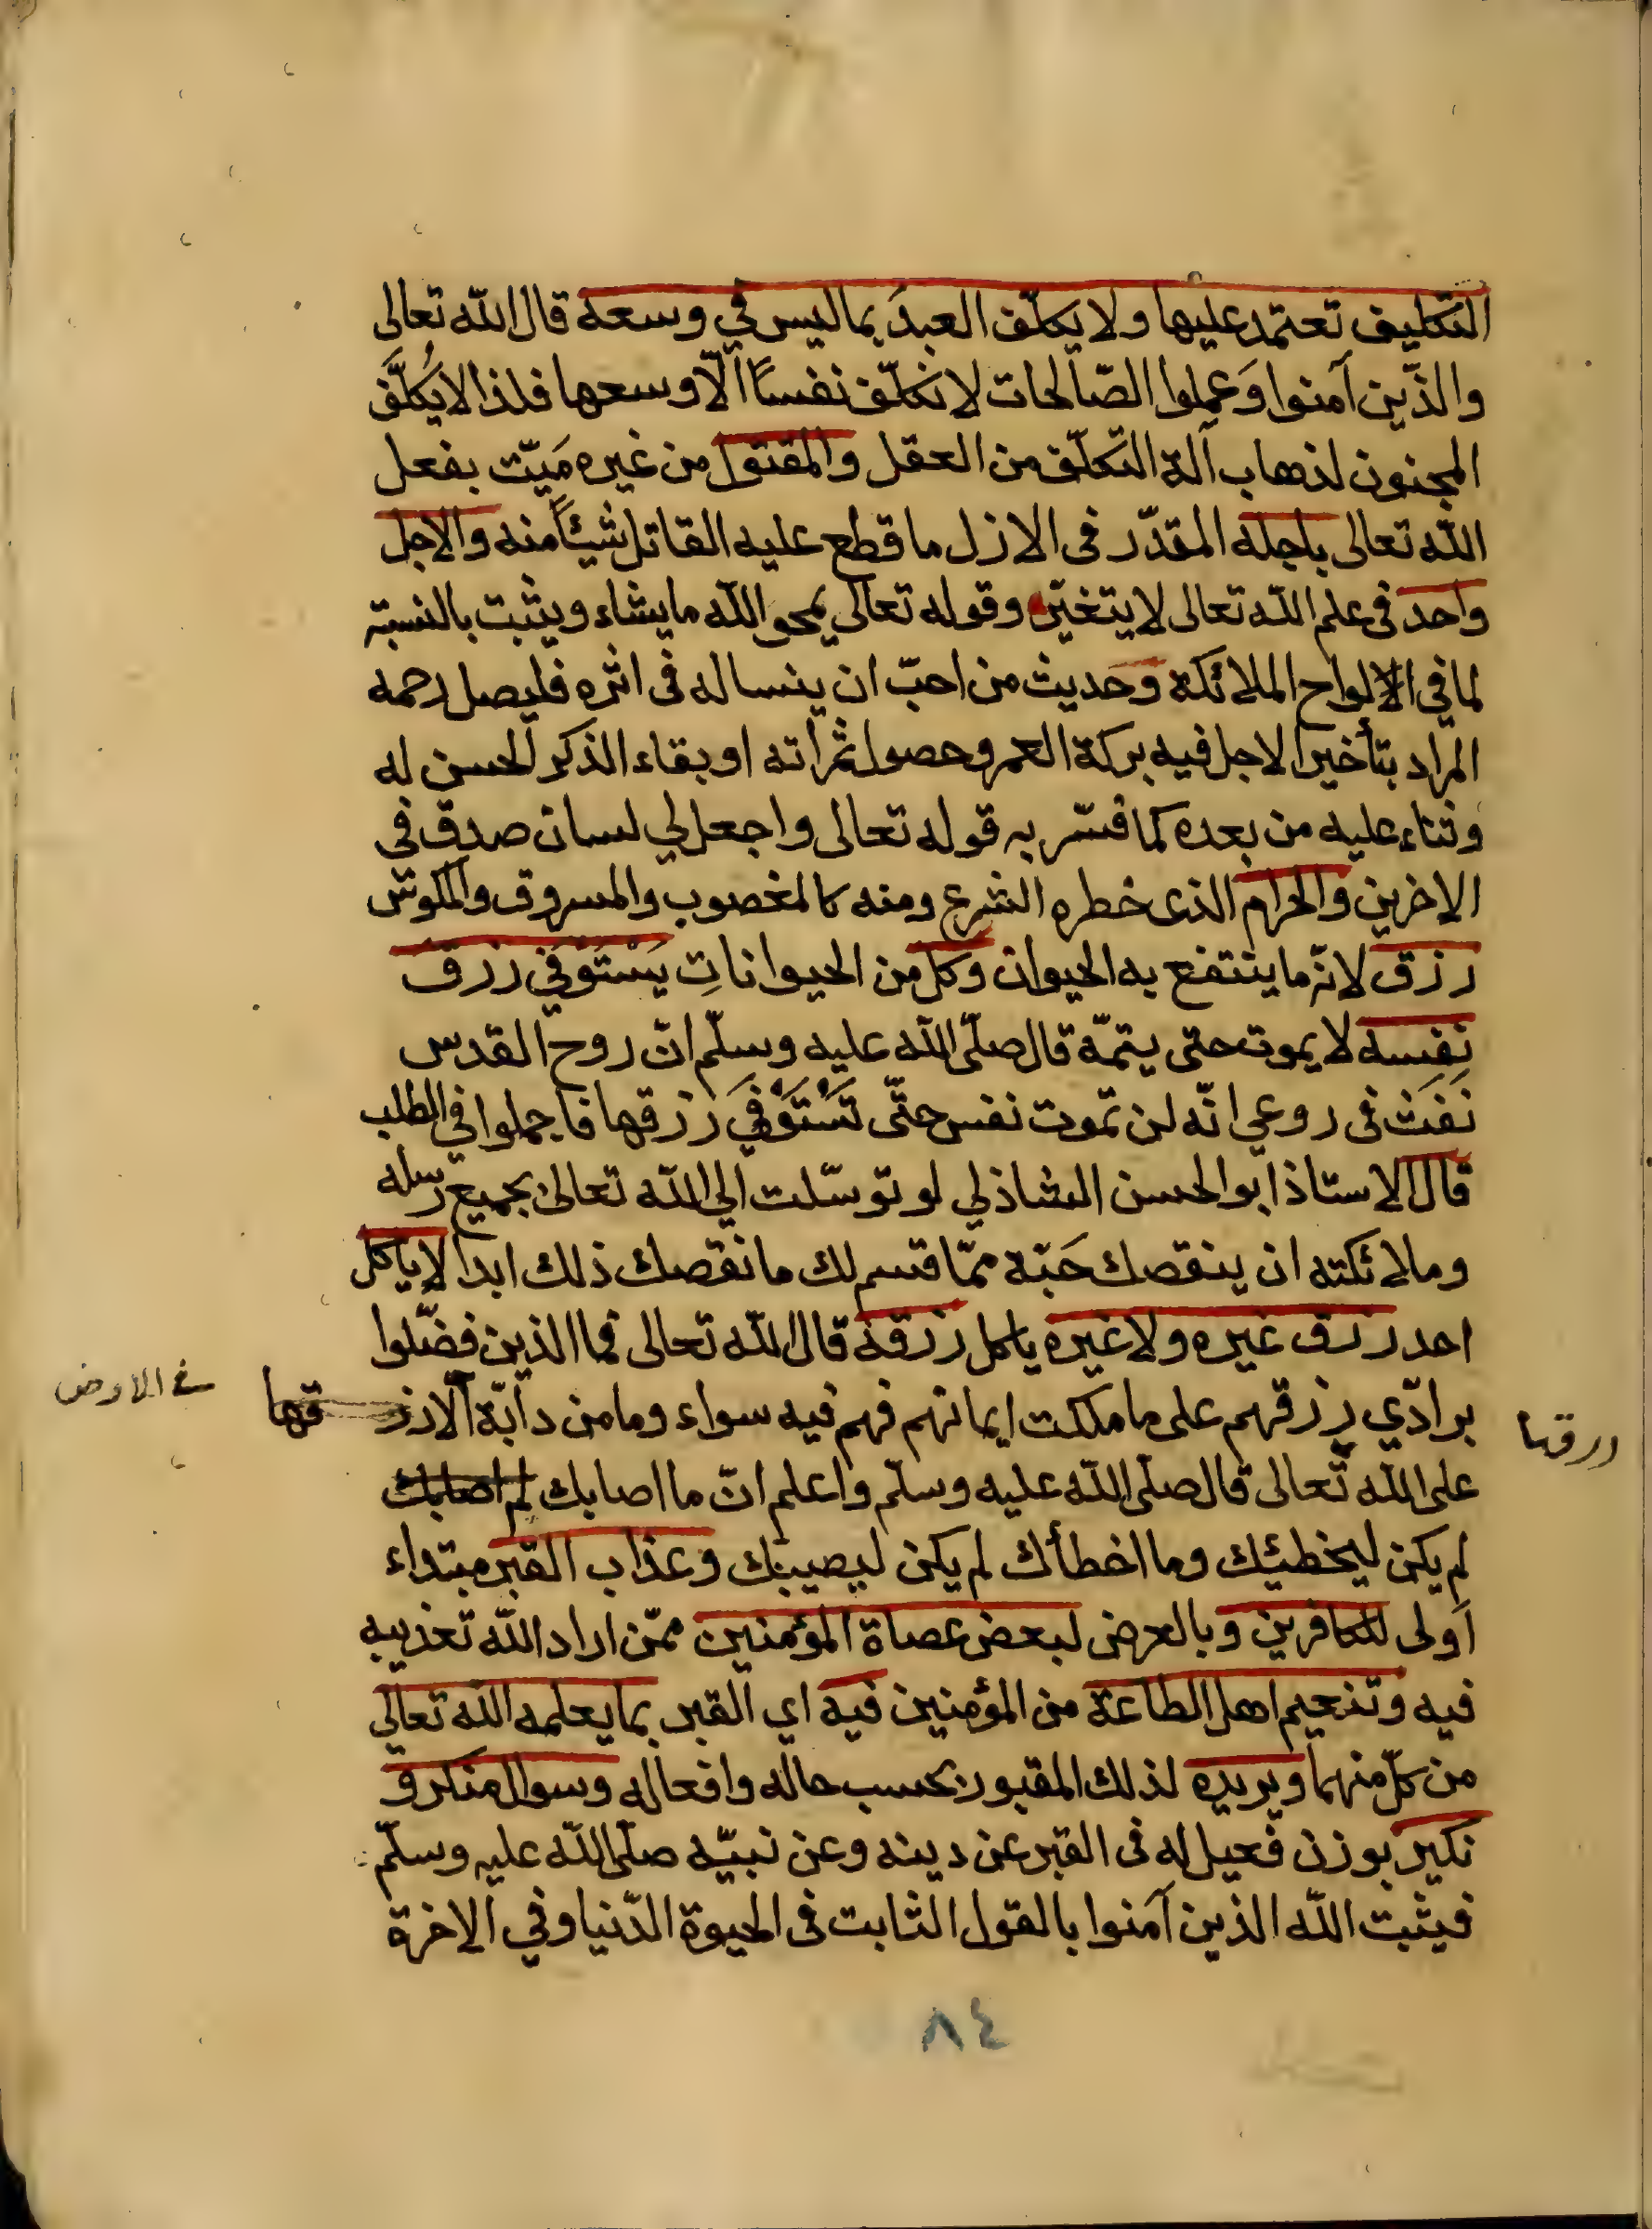 التكليف تعتمد عليها ولا يكلّف العبدَ بما ليس في وسعه قال الله تعالى
والذين آمنوا وَعملوا الصّالحات لا نكلّف نفساً الّا وسعها فلذا لا يُكلَّف
المجنون لذهاب آلة التكلّف من العقل والمقتول من غيره مَيّت بفعل
الله تعالى باجله المقدّر فى الازل ما قطع عليه القاتل شيئاً منه والاجل
واحد فى علم الله تعالى لا يتغيّر وقوله تعالى يمحو الله ما يشاء ويثبت بالنسبة
لما في الالواح الملائكة وحديث من احبّ ان ينسا له فى اثره فليصل رحمه
المراد بتأخير الاجل فيه بركة العمر وحصول ثمراته او بقاء الذكر الحسن له
وثناء عليه من بعده كما فسّر به قوله تعالى واجعل لي لسان صدق في
الاخرين والحرام الذى خطره الشرع ومنه كالمغصوب والمسروق والمكوس
رزق لانّه ما ينتفع به الحيوان وكل من الحيواناتِ يَسْتَوفي رزق
نفسه لا يموت حتى يتمّه قال صلّى الله عليه وسلّم انّ روح القدس
نَفَثَ فى روعي انّه لن تموت نفس حتّى تَسْتَوفيَ رزقها فاجملوا في الطلب
قال الاستاذ ابو الحسن الشاذلي لو توسّلت الي الله تعالى بجميع رسله
وملائكته ان ينقصك حَبّة ممّا قسم لك ما نقصك ذلك ابدا لا ياكل
احد رزق غيره ولا غيره ياكل رزقه قال الله تعالى فما الذين فضّلوا
برادّي رزقهم على ما ملكت ايمانهم فهم فيه سواء وما من دابّة الّا رز قها
في الارض
رزقها
على الله تعالى قال صلّى الله عليه وسلّم واعلم انّ ما اصابك
لم يكن ليخطيئك وما اخطأك لم يكن ليصيبك وعذاب القبر مبتداء
اَولى للكافرين وبالعرض لبعض عصاة المؤمنين ممّن اراد الله تعذيبه
فيه وتنعيم اهل الطاعة من المؤمنين فيه اي القبر بما يعلمه الله تعالى
من كلّ منهما ويريده لذلك المقبور بحسب حاله وافعاله وسوال منكر و
نكير بوزن فعيل له فى القبر عن دينه وعن نبيّه صلّى الله عليه وسلّم
فيثبت الله الذين آمنوا بالقول الثابت فى الحيوة الدّنيا وفي الاخرة
٨٤